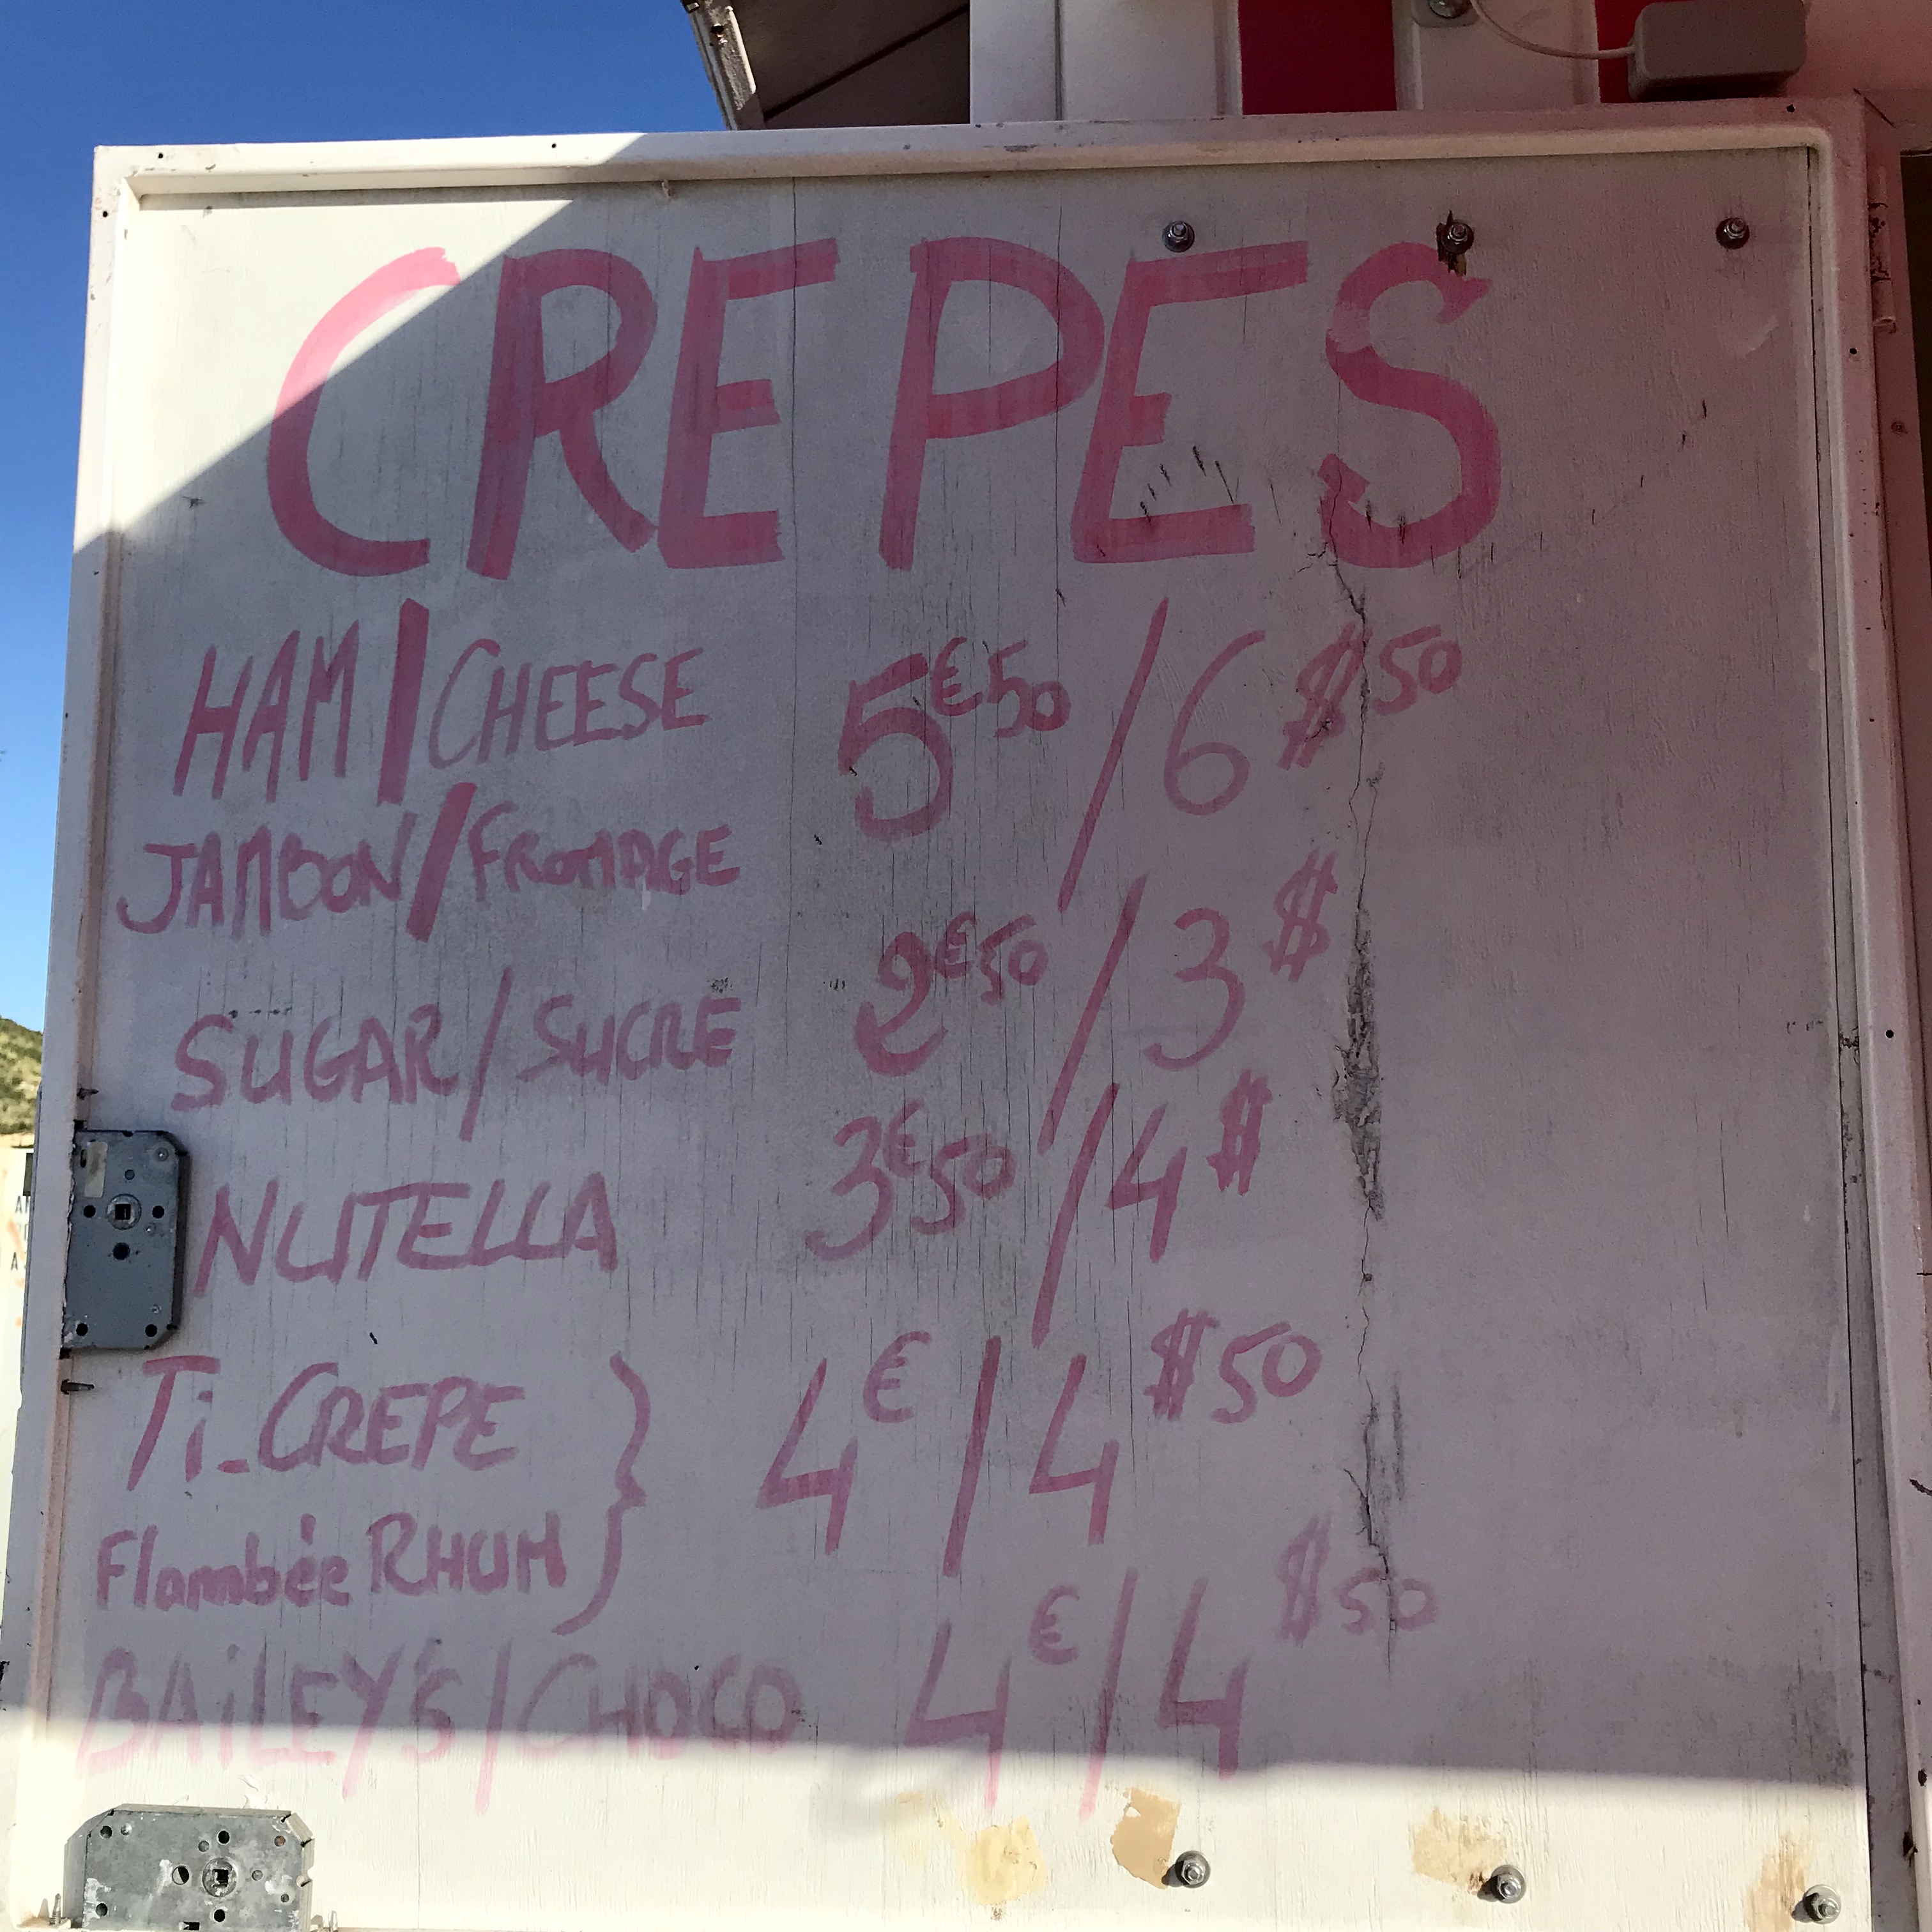 CREPES
HAM/CHEESE 5€50/6$50
JAMBON/FROMAGE
SUGAR/SUCRE 2€50/3$
NUTELLA 3€50/4$
Ti_CREPE } 4€/4$50
Flambée RHUM
BAiLEY'S/CHOCO 4€/4$50